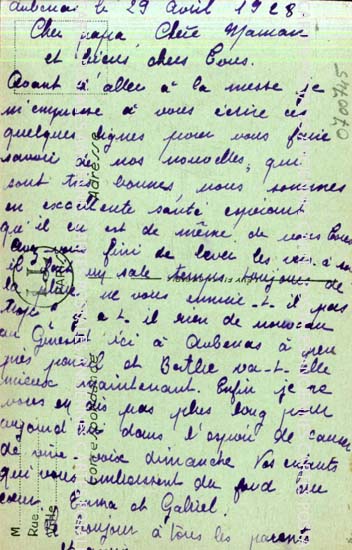 Aubenas le 29 Avril 1928.
Cher papa Chère Maman
et chers Tous.
Avant d'aller à la messe je
m'empresse à vous écrire ces
quelques lignes pour vous faire
savoir de nos nouvelles, qui
sont très bonnes nous sommes
en excellente santé espérant
qu'il en est de même de vous tous
Avez vous fini de lever les à soie
il fait un sale temps toujours de
la pluie ne vous ennuie-t-il pas
trop et y a-t-il rien de nouveau
au ici à Aubenas à peu
près pareil et Berthe va-t-elle
mieux maintenant. Enfin je ne
vous en dis pas plus long pour
aujourd'hui dans l'espoir de causer
de vive voix dimanche Vos enfants
qui vous embrassent du fond du
cœur et Gabriel.
Bonjour à tous les parents
et amis
Adresse
Correspondance
PARIS
M
Rue
Ville
0700745